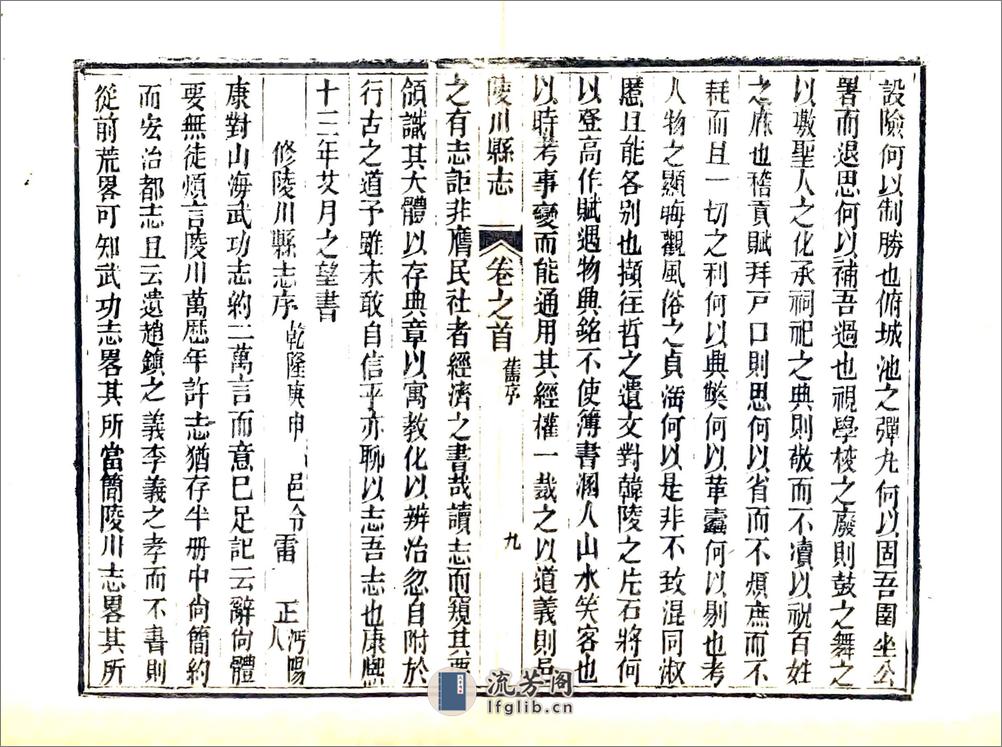 設險何以制勝也俯城池之彈丸何以固吾圉坐公
署而退思何以補吾過也視學校之廢則鼓之舞之
以敷聖人之化承祠祀之典則敬而不凟以祝百姓
之庥也稽貢賦拜戸口則思何以省而不煩庶而不
耗而且一切之利何以興弊何以革蠧何以剔也考
人物之顯晦觀風俗之貞滛何以是非不致混同淑
慝且能各别也擷往哲之遺文對韓陵之片石將何
以登高作賦遇物典銘不使簿書溷人山水笑客也
以時考事變而能通用其經權一裁之以道義則邑
陵川縣志 卷之首 舊序 九
之有志詎非膺民社者經濟之書哉讀志而窺其要
領識其大體以存典章以寓教化以辨治忽自附於
行古之道予雖未敢自信乎亦聊以志吾志也康熙
十三年艾月之望書
修陵川縣志序 乾隆庚申 邑令雷正 沔陽人
康對山海武功志約二萬言而意已足記云辭尙體
要無徒煩言陵川萬歷年許志猶存半册中尙簡約
而宏治都志且云遺趙鎮之義李義之孝而不書則
從前荒畧可知武功志畧其所當簡陵川志畧其所
流芳阁
lfglib.cn